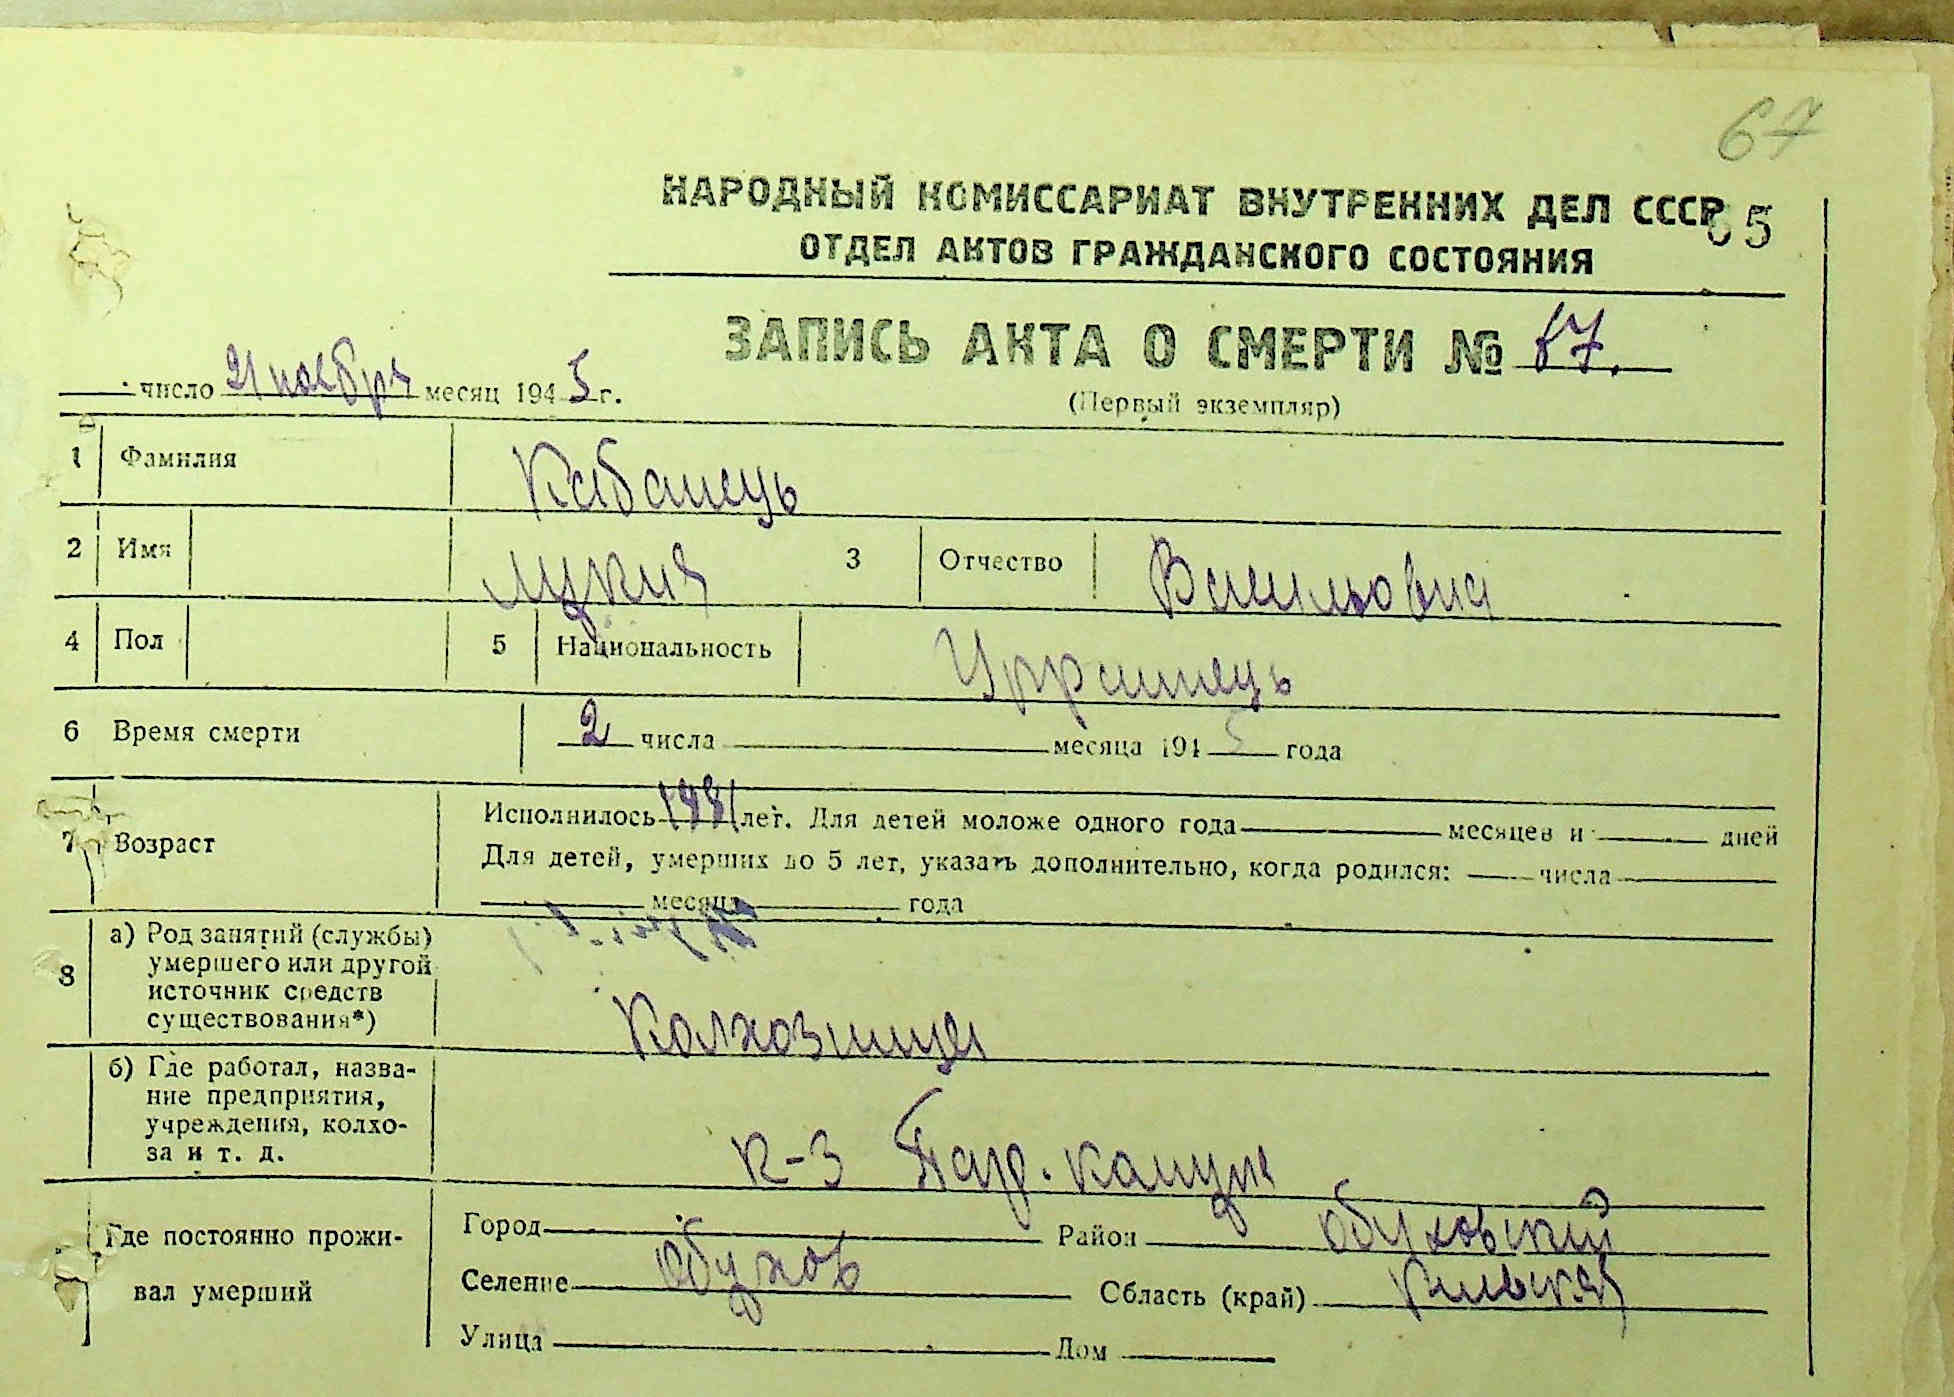 67
НАРОДНЫЙ КОМИССАРИАТ ВНУТРЕННИХ ДЕЛ СССР
65
ОТДЕЛ АКТОВ ГРАЖДАНСКОГО СОСТОЯНИЯ
ЗАПИСЬ АКТА О СМЕРТИ № 67.
число 21 ноября месяц 1945 г.
(Первый экземпляр)
1 Фамилия Кабанець
2 Имя Лукия 3 Отчество Васильовна
4 Пол 5 Национальность Украинець
6 Время смерти 2 числа месяца 1945 года
7 Возраст Исполнилось 1881 лет. Для детей моложе одного года месяцев и дней
Для детей, умерших до 5 лет, указать дополнительно, когда родился: числа
месяца года
8 а) Род занятий (службы)
умершего или другой
источник средств
существования*)
Колхозница
б) Где работал, назва-
ние предприятия,
учреждения, колхо-
за и т. д.
к-з
Где постоянно прожи-
вал умерший
Город Район Обуховский
Селение Обухов Область (край) Киевская
Улица Дом